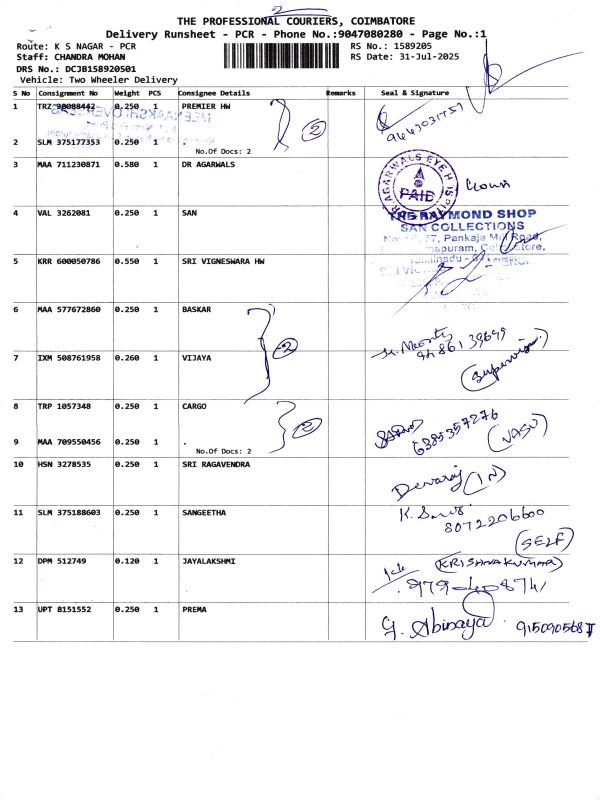 2
THE PROFESSIONAL COURIERS, COIMBATORE
Delivery Runsheet - PCR - Phone No.:9047080280 - Page No.:1
Route: K S NAGAR - PCR
RS No.: 1589205
Staff: CHANDRA MOHAN
RS Date: 31-Jul-2025
DRS No.: DCJB158920501
Vehicle: Two Wheeler Delivery
S No Consignment No Weight PCS Consignee Details Remarks Seal & Signature
1 TRZ 30088442 0.250 1 PREMIER HW
2 9443031757
2 SLM 375177353 0.250 1 .
No.Of Docs: 2
3 MAA 711230871 0.580 1 DR AGARWALS
DR AGARWALS EYE HOSPITAL
PAID
4 VAL 3262081 0.250 1 SAN
THE RAYMOND SHOP
SAN COLLECTIONS
Pankaja Mill Road,
5 KRR 600050786 0.550 1 SRI VIGNESWARA HW
6 MAA 577672860 0.250 1 BASKAR
2
7 IXM 508761958 0.260 1 VIJAYA
8 TRP 1057348 0.250 1 CARGO
2 6385357276 (VASU)
9 MAA 709550456 0.250 1 .
No.Of Docs: 2
10 HSN 3278535 0.250 1 SRI RAGAVENDRA
Devaraj (IN)
11 SLM 375188603 0.250 1 SANGEETHA
8072206600
(SELF)
12 DPM 512749 0.120 1 JAYALAKSHMI
(KRISHNAKUMAR)
13 UPT 8151552 0.250 1 PREMA
G. Abinaya